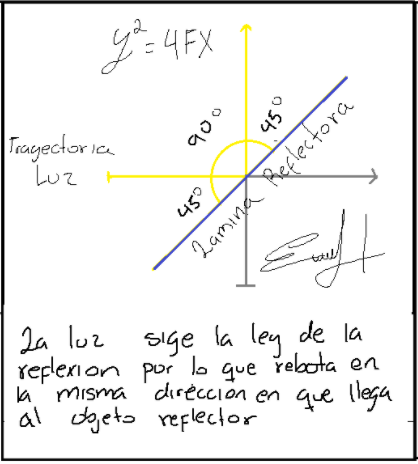 y² = 4FX
90°
45°
Trayectoria
Luz
45°
Lamina Reflectora
La luz sige la ley de la
reflexion por lo que rebota en
la misma dirección en que llega
al objeto reflector